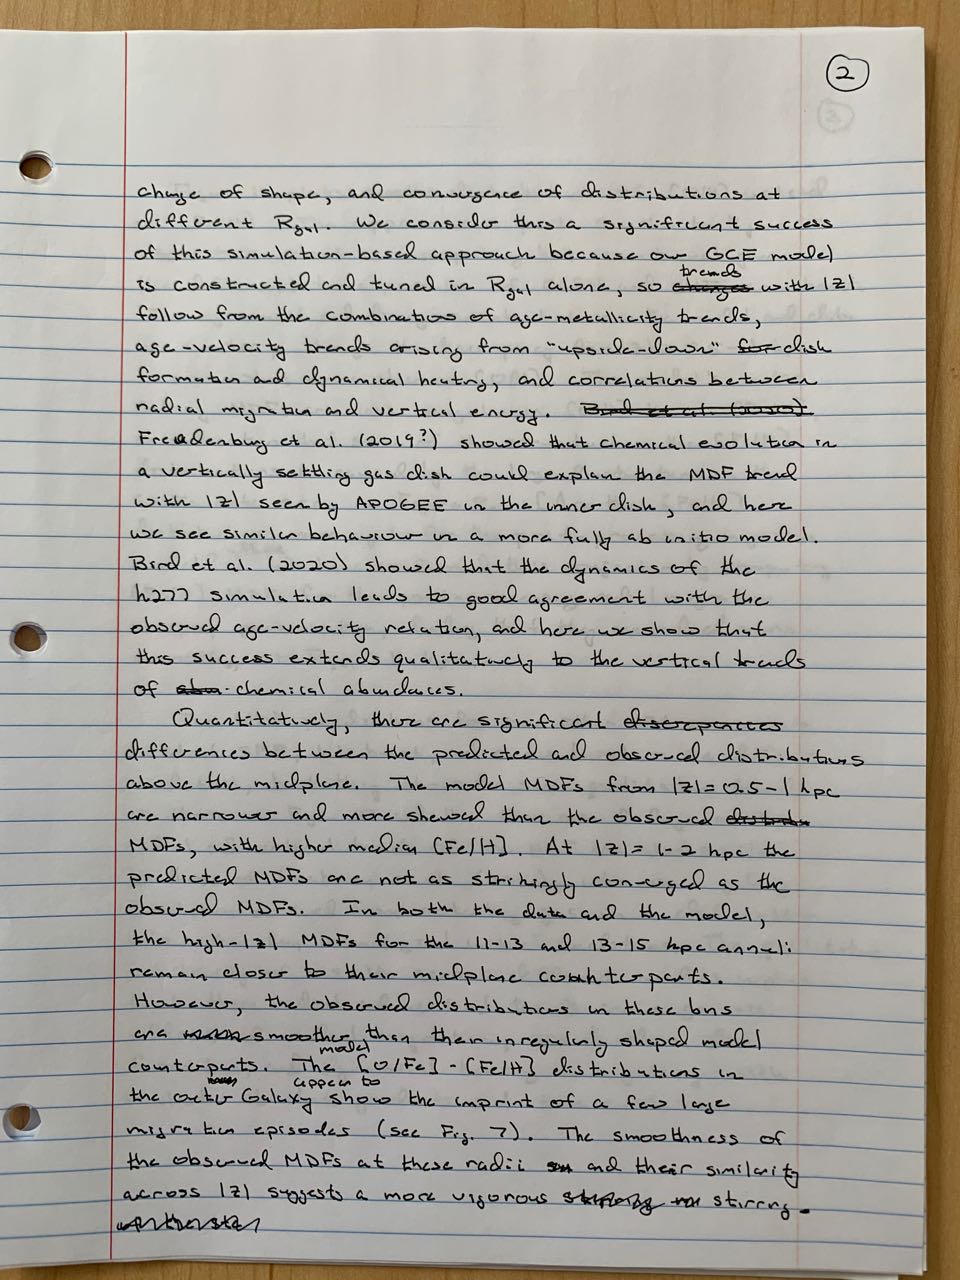 2
change of shape, and convergence of distributions at
different Rgal. We consider this a significant success
of this simulation-based approach because our GCE model
trends
is constructed and tuned in Rgal alone, so changes with |z|
follow from the combination of age-metallicity trends,
age-velocity trends arising from "upside-down" for disk
formation and dynamical heating, and correlations between
radial migration and vertical energy. Bird et al. (2020).
Freudenburg et al. (2019?) showed that chemical evolution in
a vertically settling gas disk could explain the MDF trend
with |z| seen by APOGEE in the inner disk, and here
we see similar behaviour in a more fully ab initio model.
Bird et al. (2020) showed that the dynamics of the
h277 simulation leads to good agreement with the
observed age-velocity relation, and here we show that
this success extends qualitatively to the vertical trends
of chemical abundances.
Quantitatively, there are significant discrepancies
differences between the predicted and observed distributions
above the midplane. The model MDFs from |z|=0.5-1 kpc
are narrower and more skewed than the observed distribu
MDFs, with higher median [Fe/H]. At |z|=1-2 kpc the
predicted MDFs are not as strikingly converged as the
observed MDFs. In both the data and the model,
the high-|z| MDFs for the 11-13 and 13-15 kpc annuli
remain closer to their midplane counterparts.
However, the observed distributions in these bins
are smoother than their irregularly shaped model
model
counterparts. The [O/Fe]-[Fe/H] distributions in
appear to
the outer Galaxy show the imprint of a few large
migration episodes (see Fig. 7). The smoothness of
the observed MDFs at these radii and their similarity
across |z| suggests a more vigorous stirring.